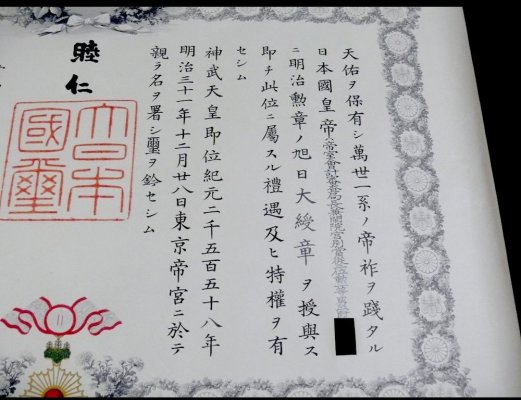 天佑ヲ保有シ萬世一系ノ帝祚ヲ踐タル
日本國皇帝ハ帝室會計審査局長
ニ明治勳章ノ旭日大綬章ヲ授與ス
即チ此位ニ屬スル禮遇及ヒ特權ヲ有
セシム
神武天皇即位紀元二千五百五十八年
明治三十一年十二月廿八日東京帝宮ニ於テ
親ラ名ヲ署シ璽ヲ鈐セシム
睦仁
大日本
國璽